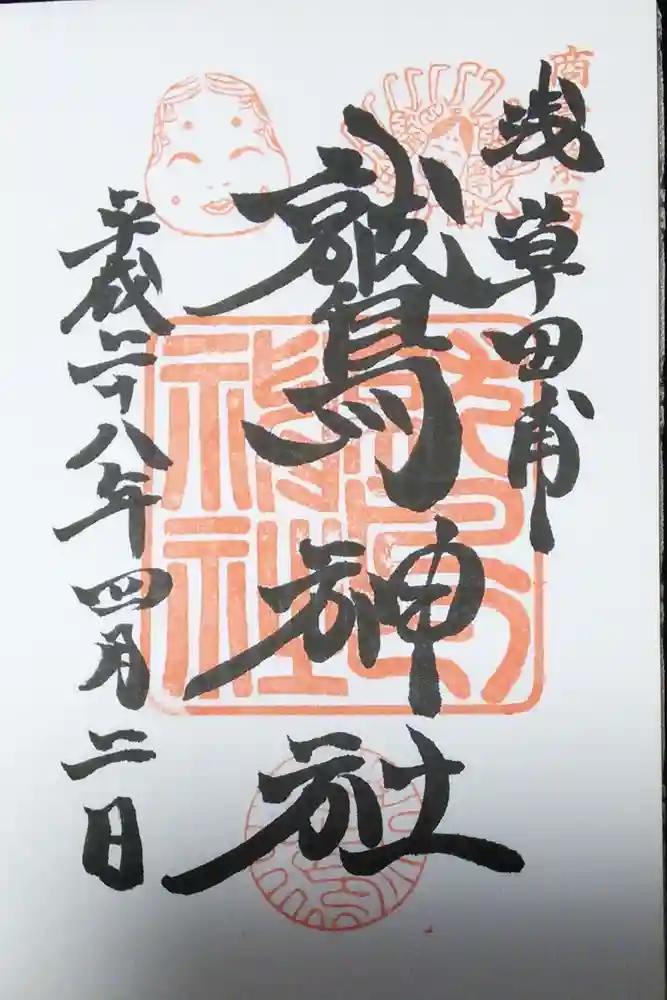 浅草田甫
鷲神社
平成二十八年四月二日
鷲神社